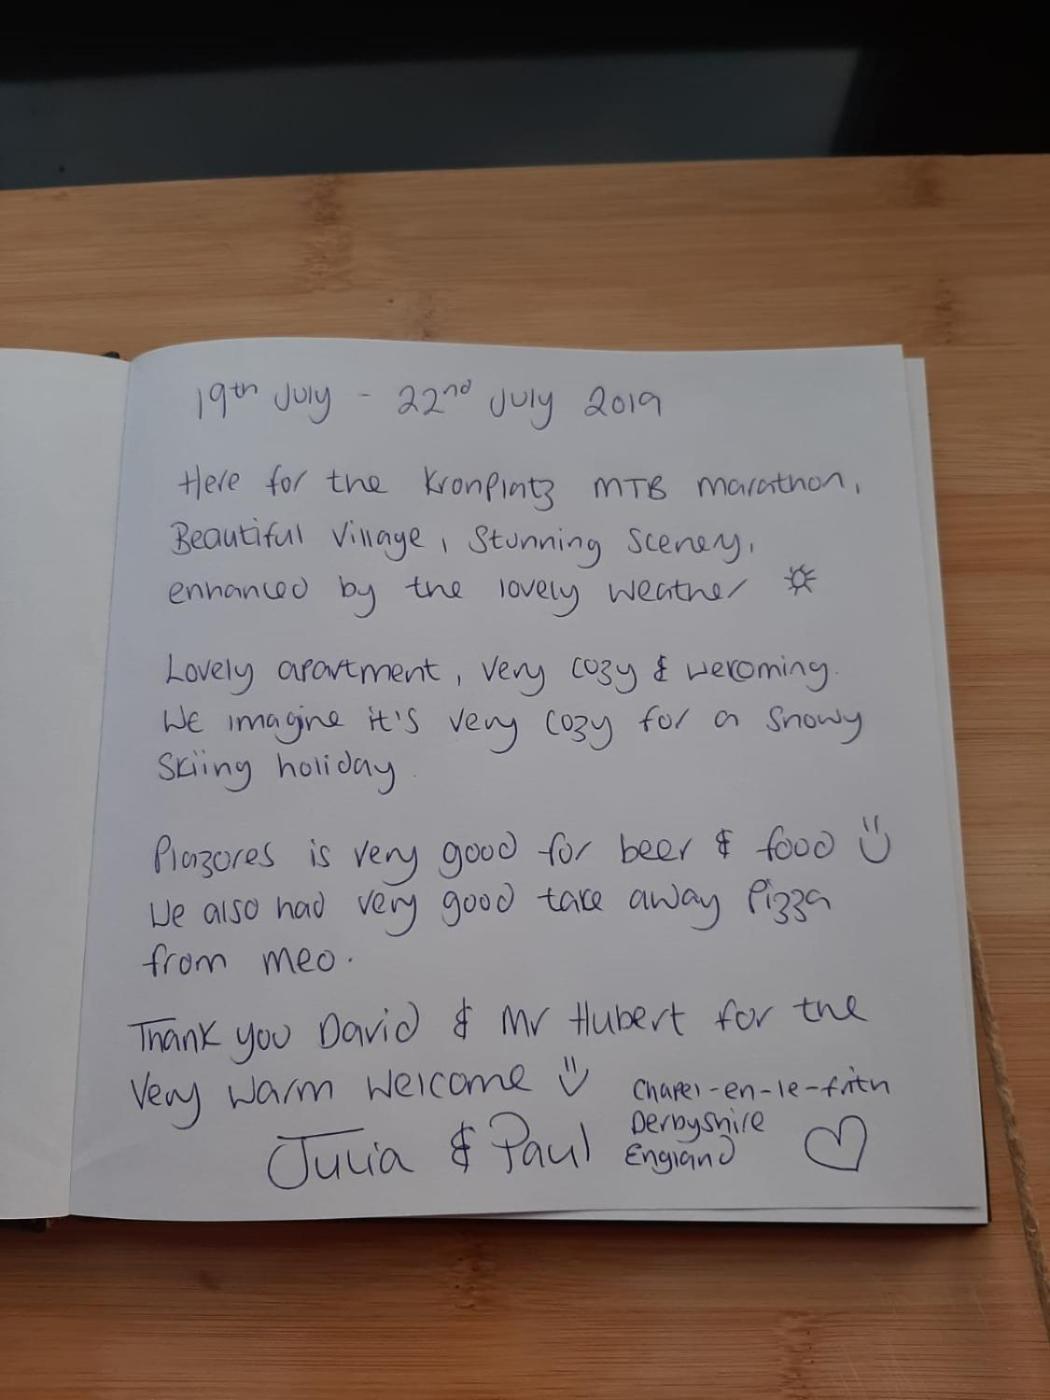 19th July - 22nd July 2019
Here for the Kronplatz MTB marathon,
Beautiful Village, Stunning Scenery,
enhanced by the lovely weather
Lovely apartment, very cozy & welcoming.
We imagine it's very cozy for a snowy
skiing holiday.
Plazores is very good for beer & food
We also had very good take away Pizza
from meo.
Thank you David & Mr Hubert for the
Very warm welcome
Chapel-en-le-frith
Derbyshire
Julia & Paul England